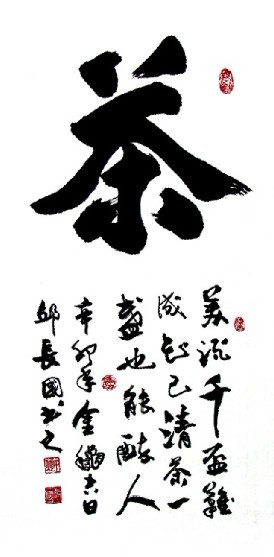 茶
美酒千盃難
成知己清茶一
盞也能醉人
辛卯年金龝吉日
邱長國书之